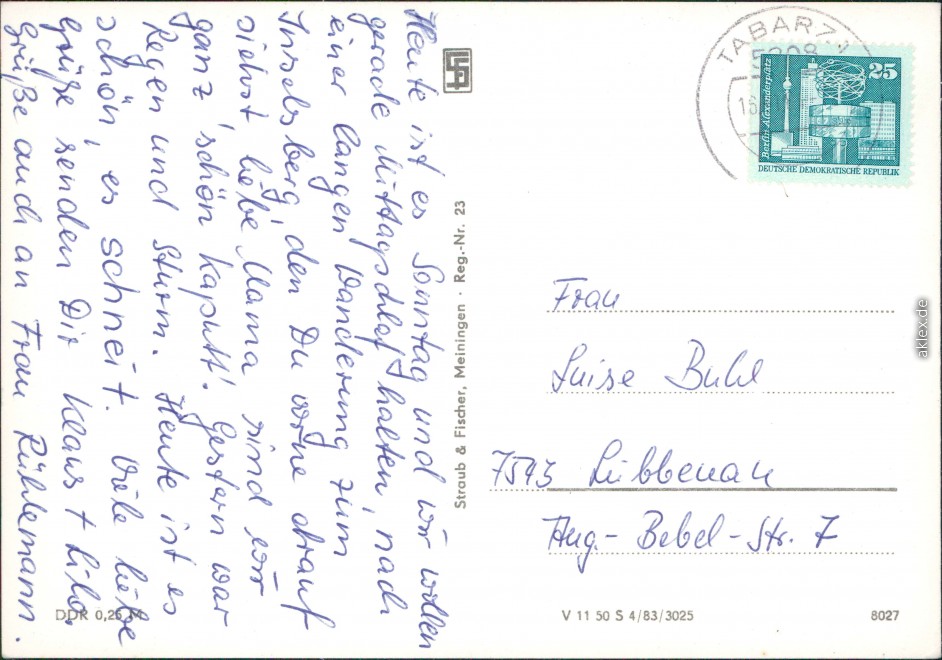 Heute ist es Sonntag und wir wollen
gerade Mittagsschlaf halten, nach
einer langen Wanderung zum
Inselsberg, den Du vorne drauf
siehst, liebe Mama sind wir
ganz schön kaputt. Gestern war
Regen und Sturm. Heute ist es
schön, es schneit. Viele liebe
Grüße senden Dir Klaus + Lilo.
Grüße auch an Frau Rühlemann.
Straub & Fischer, Meiningen · Reg.-Nr. 23
TABARZ 1
5808
25
Berlin, Alexanderplatz
DEUTSCHE DEMOKRATISCHE REPUBLIK
Frau
Luise Buhl
7543 Lübbenau
Aug.-Bebel-Str. 7
DDR 0,25 M
V 11 50 S 4/83/3025
8027
aklex.de